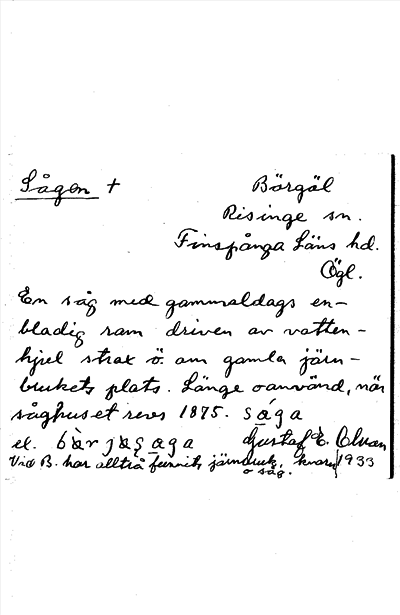 Sågen +
Börgöl
Risinge sn.
Finspånga Läns hd.
Ögl.
En såg med gammaldags en-
bladig ram driven av vatten-
hjul strax ö. om gamla järn-
brukets plats. Länge oanvänd, när
såghuset revs 1875. saga
el.
Gustaf E. Olvan
Vid B. har alltså funnits järnbruk, kvarn 1933
o såg.